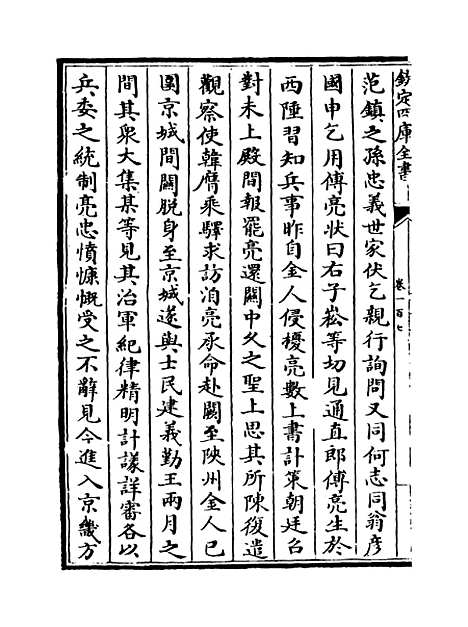 欽定四庫全書
卷一百七
范鎮之孫忠義世家伏乞親行詢問又同何志同翁彦
國申乞用傅亮狀曰右子崧等切見通直郎傅亮生於
西陲習知兵事昨自金人侵擾亮數上書計策朝廷召
對未上殿間報罷亮還關中久之聖上思其所陳復遣
觀察使韓膺乘驛求訪洎亮承命赴闕至陜州金人已
圍京城間關脱身至京城遂與士民建義勤王兩月之
間其衆大集某等見其治軍紀律精明計議詳審各以
兵委之統制亮忠憤慷慨受之不辭見今進入京畿方